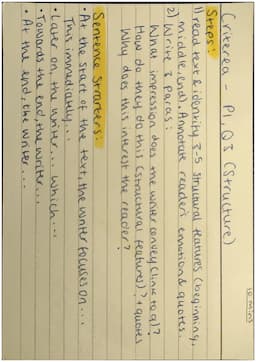 10 mins
Criterea - P1 Q3 (Structure)
Steps:
1) read text & identify 3-5 strutural features (beginning,
middle, end). Annotate reader's emotion & quotes
2) Write 3 Paras:
What impression does the writer convey (link to q)?
How do they do this (structural features)? + quotes
Why does this interest the reader?
Sentence Starters:
• At the start of the text, the writer focuses on...
This immediately...
• Later on, the writer... which...
• Towards the end, the writer...
• At the end, the writer...